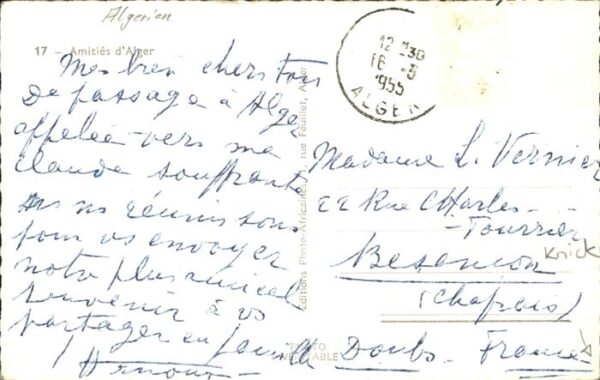 Algerien
17 - Amitiés d'Alger
Mes bien chers tous
De passage à Alger
appelée vers ma
Claude souffrante
ns ns réunissons
pour vs envoyer
notre plus amical
souvenir à vs
partager en famille
Editions Photo-Africaines, rue Feuillet, Alger
PHOTO
VÉRITABLE
12 30
16 - 3
1955
ALGER
Madame L. Vernier
22 Rue Charles
Fourrier
Besancon
Knick
(Chaprais)
Doubs - France